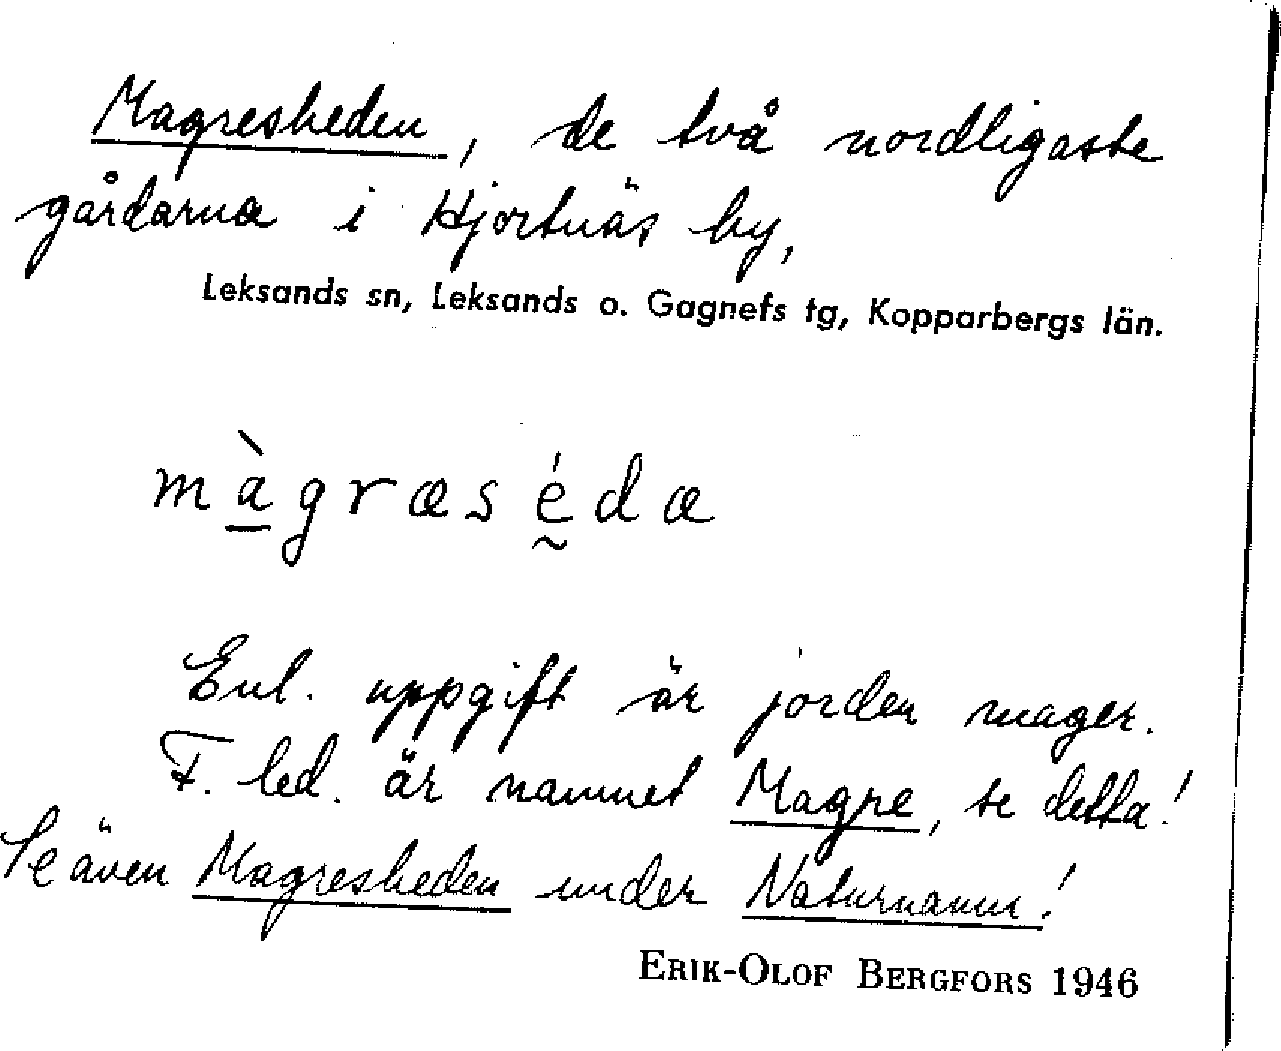 Magresheden, de två nordligaste
gårdarna i Hjortnäs by,
Leksands sn, Leksands o. Gagnefs tg, Kopparbergs län.
màgræsédæ
Enl. uppgift är jorden mager.
F. led. är namnet Magre, se detta!
Se även Magresheden under Naturnamn!
ERIK-OLOF BERGFORS 1946